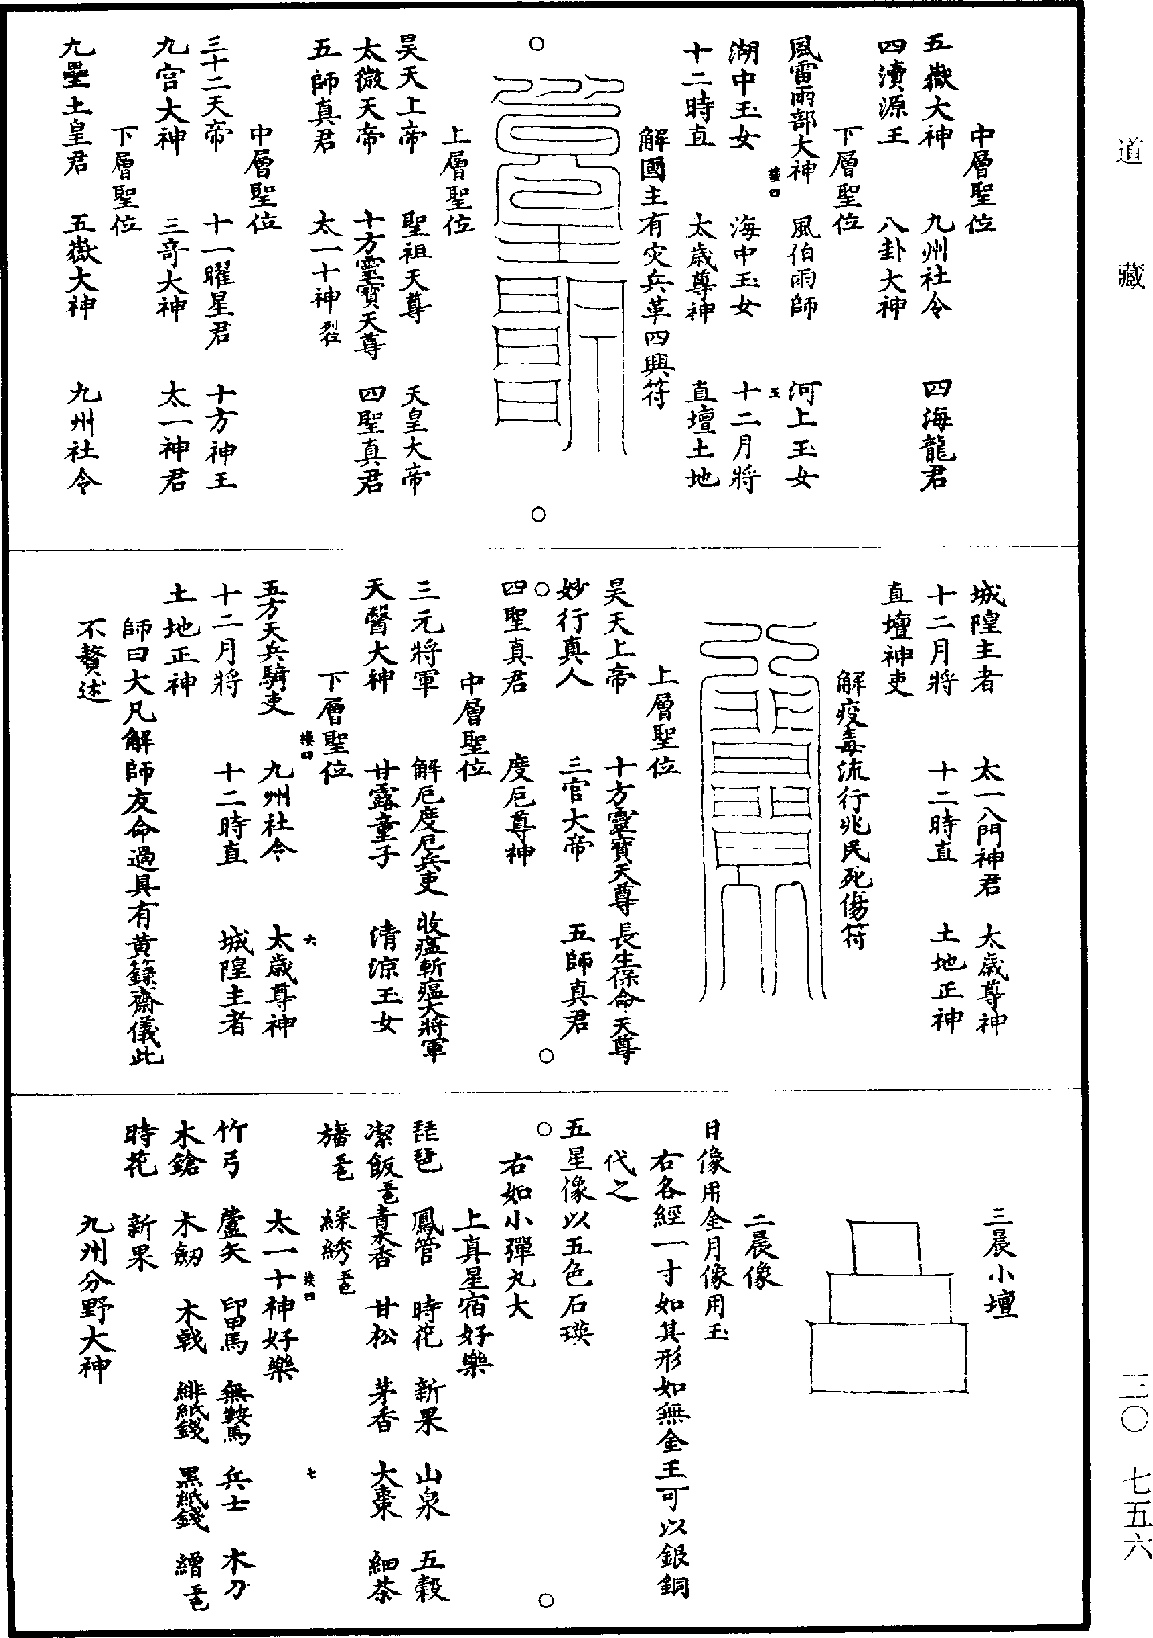 道藏
三〇 七五六
中層聖位
五嶽大神 九州社令 四海龍君
四瀆源王 八卦大神
下層聖位
風雷雨部大神 風伯雨師 河上玉女
湖中玉女 海中玉女 十二月將
十二時直 太歲尊神 直壇土地
解國主有灾兵革四興符
上層聖位
昊天上帝 聖祖天尊 天皇大帝
太微天帝 十方靈寶天尊 四聖真君
五師真君 太一十神
中層聖位
三十二天帝 十一曜星君 十方神王
九宮大神 三奇大神 太一神君
下層聖位
九壘土皇君 五嶽大神 九州社令
城隍主者 太一八門神君 太歲尊神
十二月將 十二時直 土地正神
直壇神吏
解疫毒流行兆民死傷符
上層聖位
昊天上帝 十方靈寶天尊 長生保命天尊
妙行真人 三官大帝 五師真君
四聖真君 度厄尊神
中層聖位
三元將軍 解厄度厄兵吏 收瘟斬瘟大將軍
天醫大神 甘露童子 清涼玉女
下層聖位
五方天兵騎吏 九州社令 太歲尊神
十二月將 十二時直 城隍主者
土地正神
師曰大凡解師友命過具有黄籙齋儀此
不贅述
三晨小壇
二晨像
日像用金月像用玉
右各經一寸如其形如無金玉可以銀銅
代之
五星像以五色石瑛
右如小彈丸大
上真星宿好樂
琵琶 鳳管 時花 新果 山泉 五穀
潔飯五色 青木香 甘松 茅香 大棗 細茶
旛五色 綵綉五色
太一十神好樂
竹弓 蘆矢 印甲馬 無鞍馬 兵士 木刀
木鎗 木劒 木戟 緋紙錢 黑紙錢 繒五色
時花 新果
九州分野大神